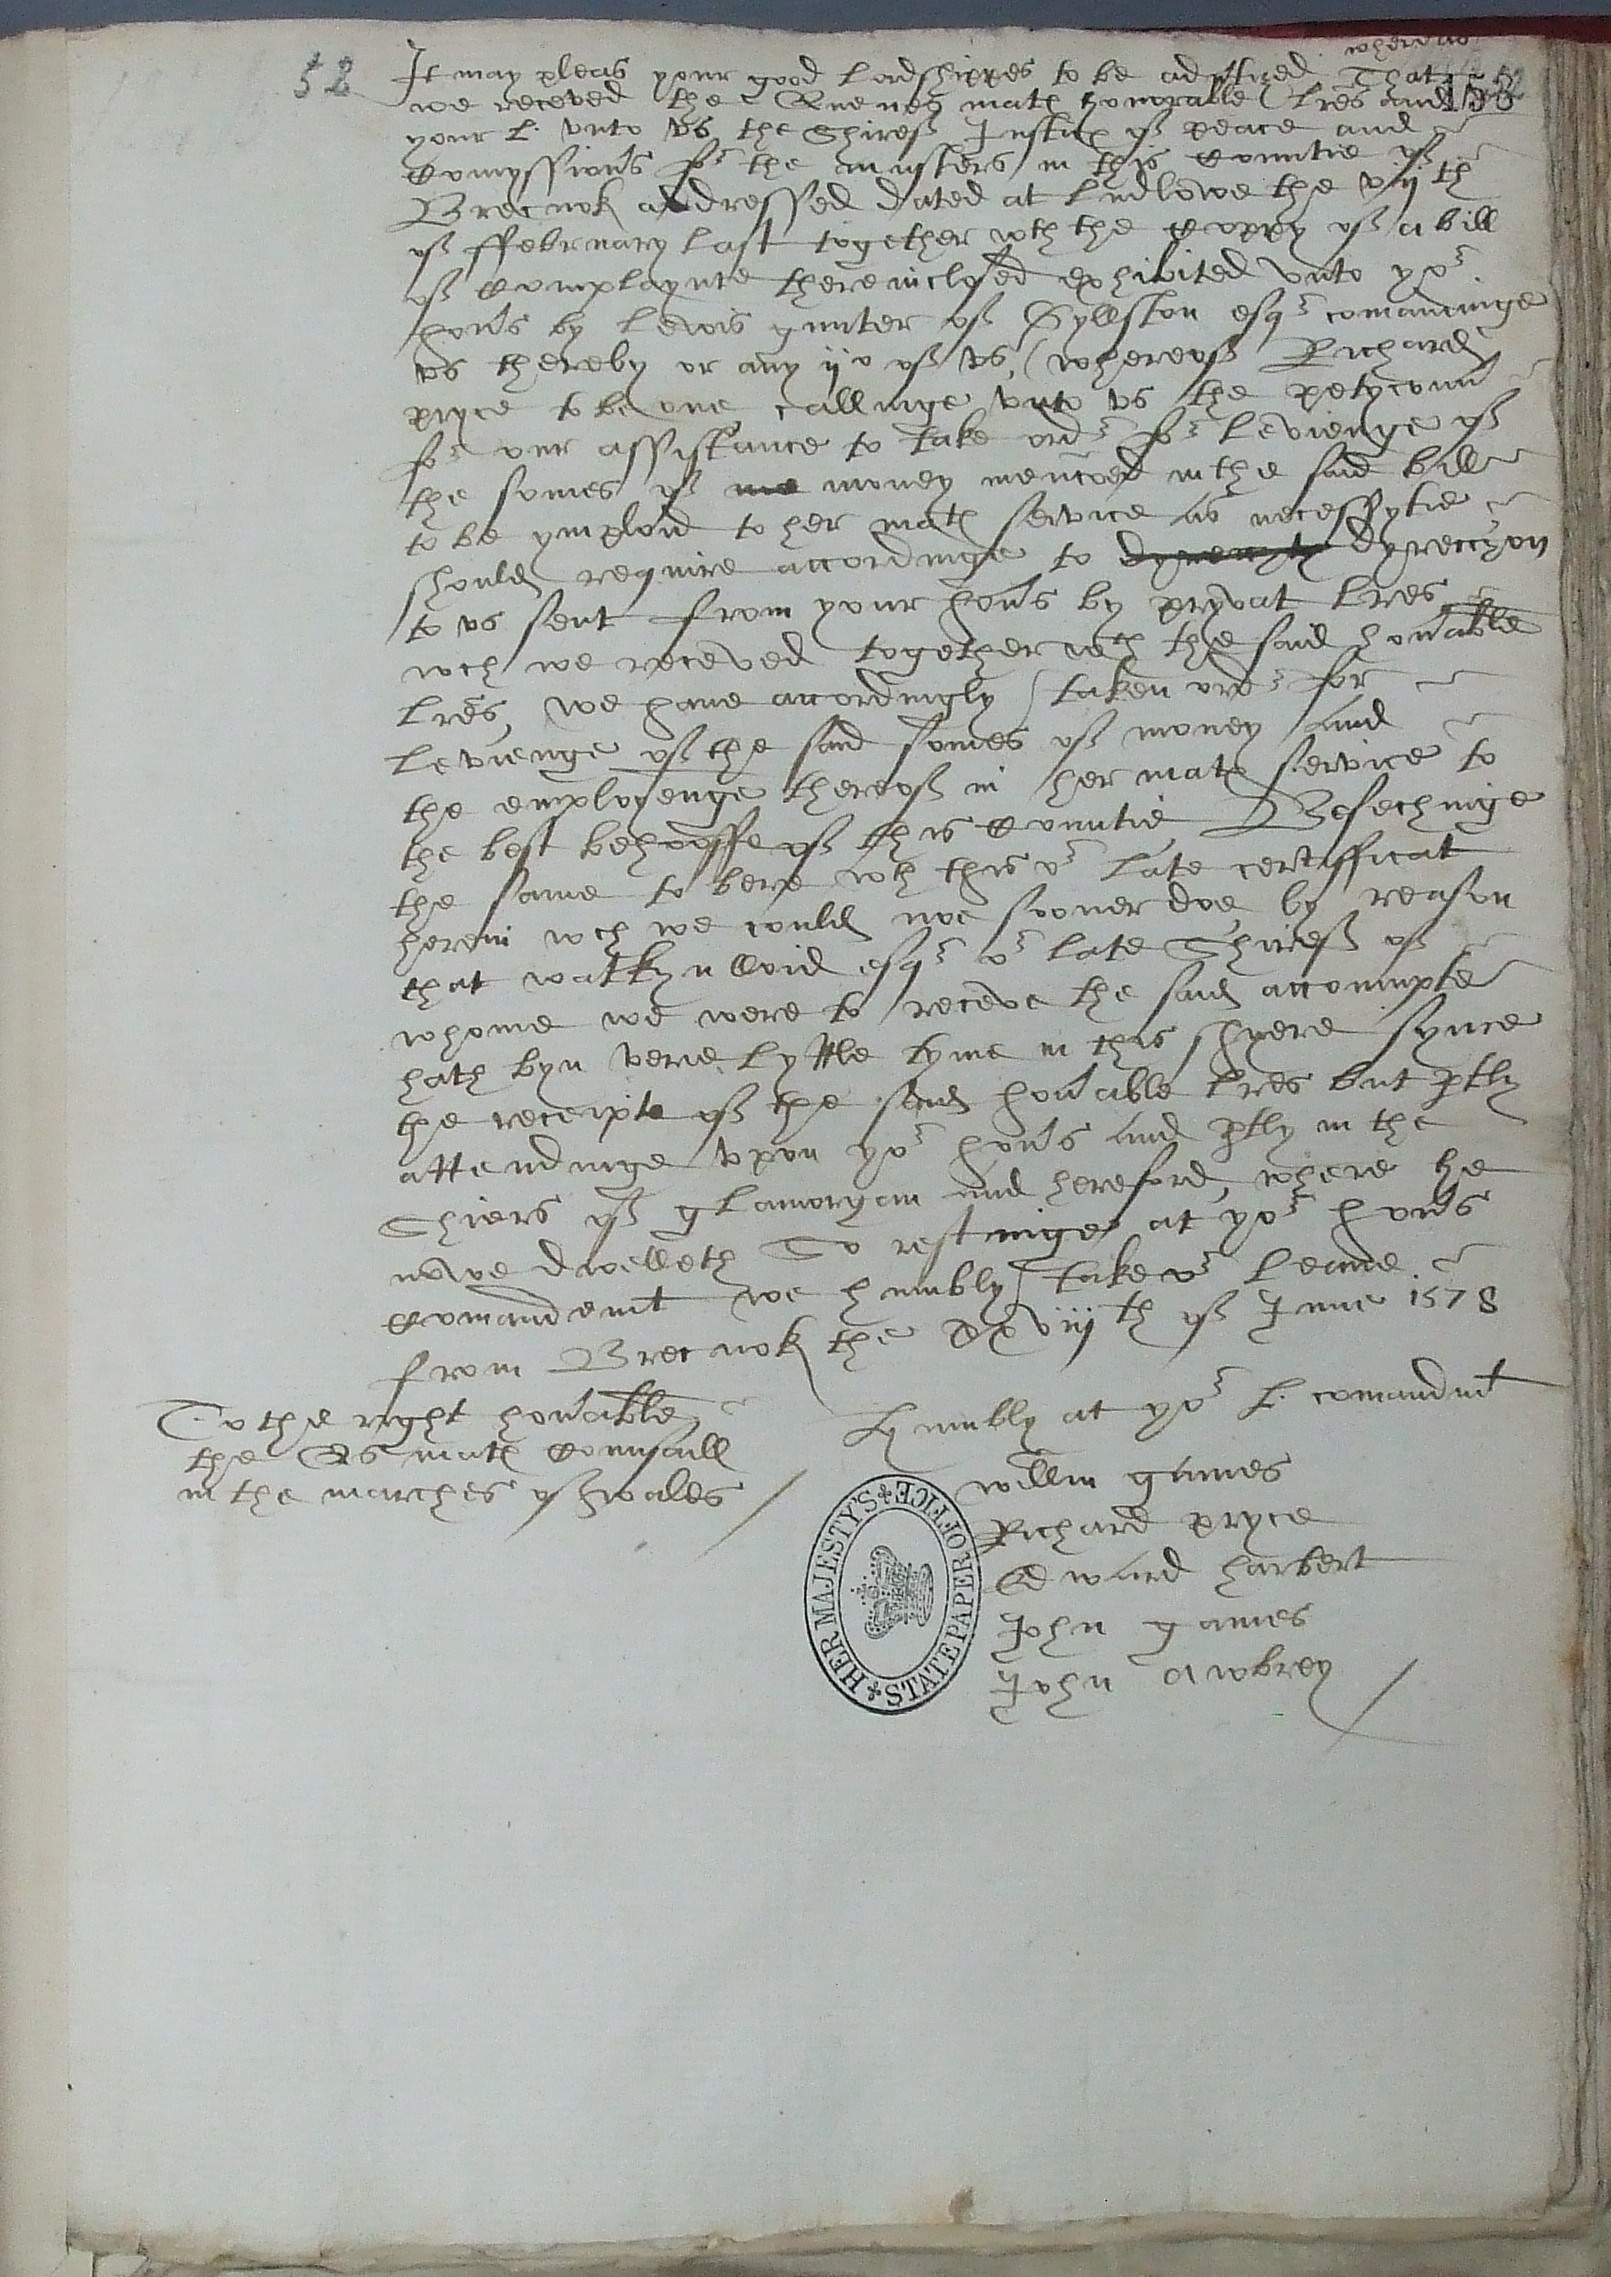 52
whereas
It may pleas your good Lordshippes to be advtized That
we receved the Quenes matꝭ honorable lres and
your L. vnto vs the Shireff Justicꝭ of peace and
Comyssion's for the musters in this Countie of
Brecnok addressed dated at Ludlowe the vijth
of ffebruary last together wth the Coppy of a bill
of Complaynte thereinclosed exhibited vnto yor
hono's by Lewis gunter of Gyllston esqr comaundinge
vs thereby or any ijo of vs, whereof Richard
pryce to be one callinge vnto vs the petycon'
for our assistance to take ordr for Levienge of
the somes of me money menc'oed in the said bill
to be ymploid to her matꝭ service as necessytie
should require accordinge to dyreccyon
to vs sent from your hono's by pryvat lres
wch we receved together wth the said hon'able
lres, we have accordingly taken ordr for
Levienge of the said somes of money And
the employenge thereof in her matꝭ service to
the best behooffe of this Countie Besechinge
the same to bere wth this or late certifficat
herein wch we could noe sooner doe by reason
that watkyn lloid esqr or late Shireff of
whome we were to receve the said accoumpte
hath byn verie Lyttle tyme in this shyere synce
the receipte of the said hon'able lres but ptly
attendinge vpon yor hono's And ptly in the
Shiers of glamorgan and hereford, where he
nowe dwelleth To restinge at yor hono's
Comandemt we humbly take or Leave
from Brecnok the xxviijth of June 1578
To the right hon'able
the Qs matꝭ Counsaill
in the marches of wales
humbly at yor L. comandmt
willm games
Richard pryce
Edward harbert
John games
John Awbrey
HER MAJESTY'S STATE PAPER OFFICE